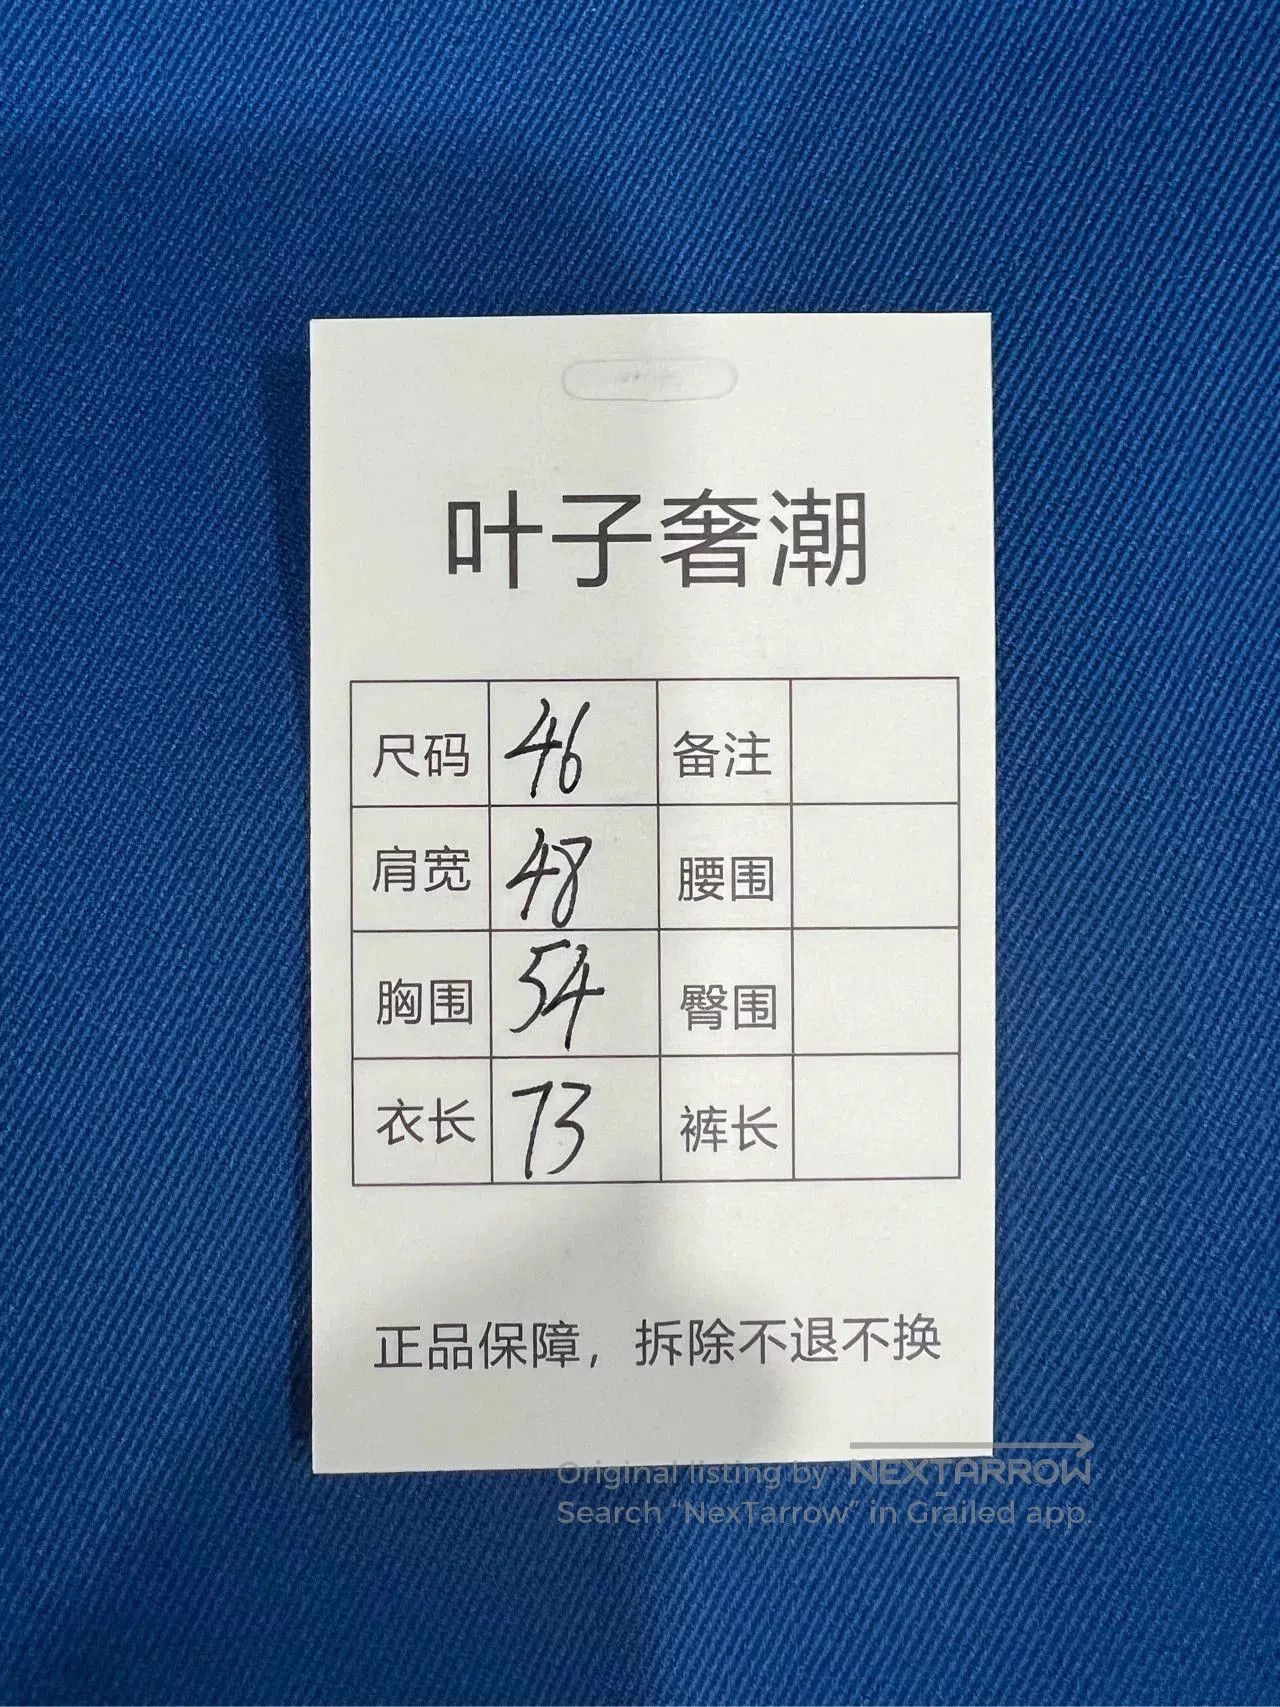 叶子奢潮
尺码 46 备注
肩宽 48 腰围
胸围 54 臀围
衣长 73 裤长
正品保障，拆除不退不换
Original listing by NEXTARROW
Search “NexTarrow” in Grailed app.